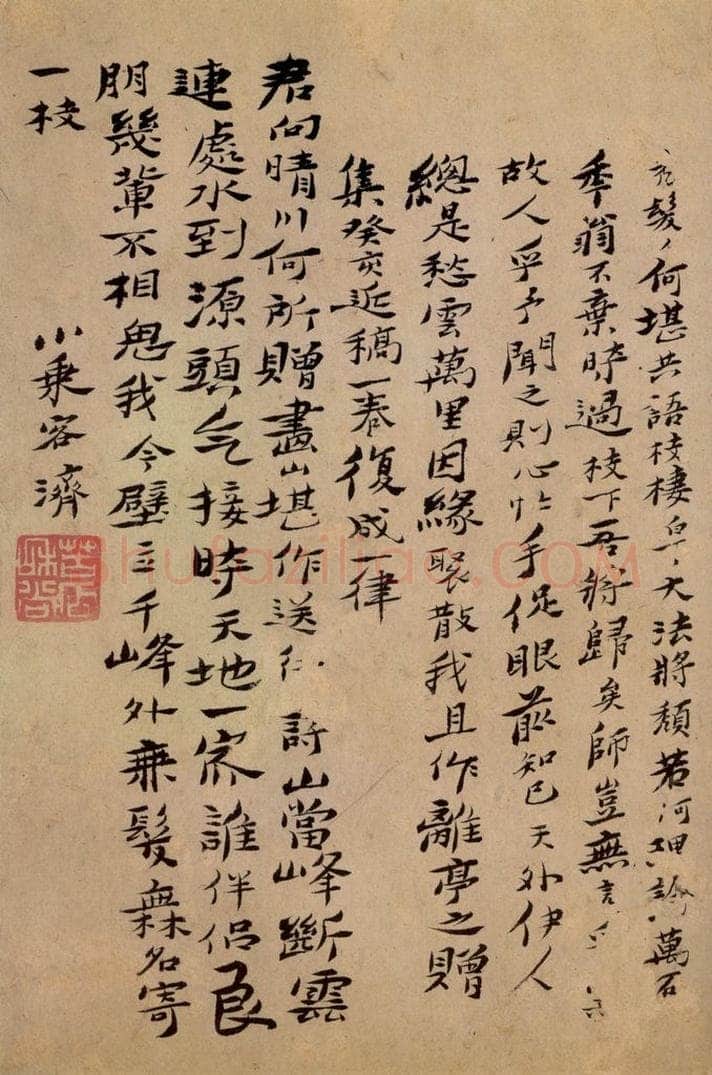 髮〻何堪共語枝棲皁〻大法將頹若河澀論萬石
季翁不棄時過枝下吾將歸矣師豈無言
故人乎予聞之則心忙手促眼前知己天外伊人
總是愁雲萬里因緣聚散我且作離亭之贈
集癸亥近稿一卷復成一律
君向晴川何所贈畫山堪作送行詩山當峰斷雲
連處水到源頭氣接時天地一客誰伴侶良
朋幾輩不相思我今壁立千峰外兼髮無名寄
一枝
小乘客濟
苦瓜和尚
shufaziliao.COM